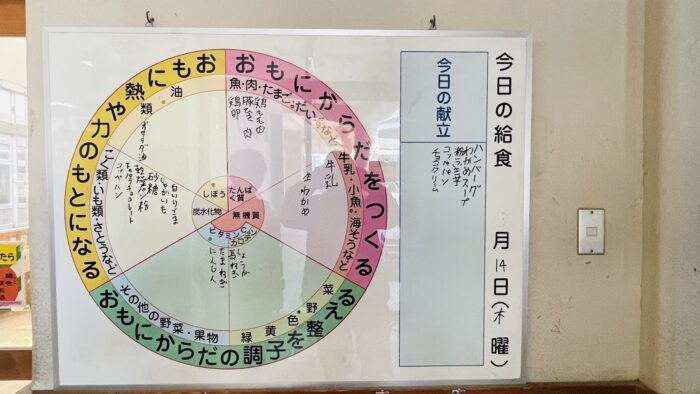 今日の給食
月14日(木曜)
今日の献立
ハンバーグ
わかめスープ
粉ふき芋
コッペパン
チョコクリーム
おもにからだをつくる
魚・肉・たまご・だいずなど
鶏もも肉
豚ひき肉
鶏卵
牛乳・小魚・海そうなど
牛乳
生わかめ
おもに熱や力のもとになる
油類
サラダ油
こく類・いも類・さとうなど
白いりごま
じゃがいも
砂糖
乾燥パン粉
コッペパン
おもにからだの調子を整える
緑黄色野菜
その他の野菜・果物
しょうが
長ねぎ
たまねぎ
にんじん
しぼう
たんぱく質
炭水化物
無機質
ビタミンC
カロチン